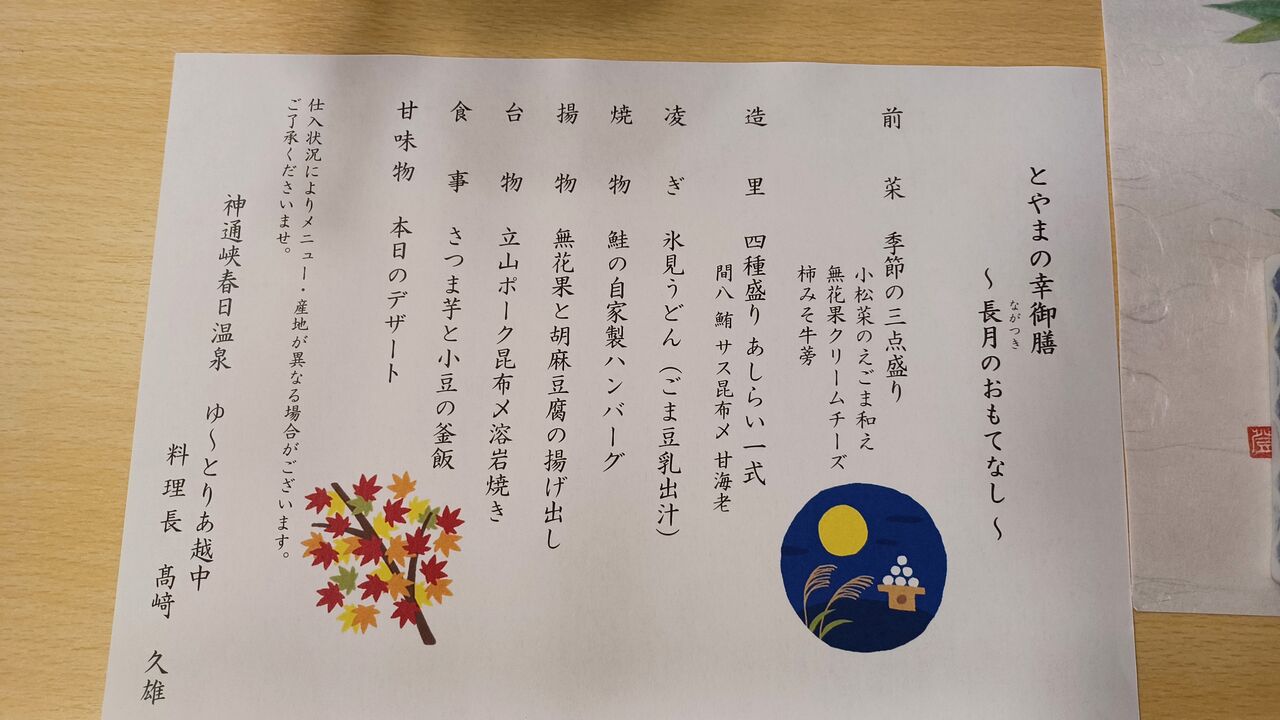 とやまの幸御膳
～長月のおもてなし～
ながつき
前菜 季節の三点盛り
小松菜のえごま和え
無花果クリームチーズ
柿みそ牛蒡
造里 四種盛り あしらい一式
間八 鮪 サス昆布〆 甘海老
凌ぎ 氷見うどん（ごま豆乳出汁）
焼物 鮭の自家製ハンバーグ
揚物 無花果と胡麻豆腐の揚げ出し
台物 立山ポーク昆布〆溶岩焼き
食事 さつま芋と小豆の釜飯
甘味物 本日のデザート
仕入状況によりメニュー・産地が異なる場合がございます。
ご了承くださいませ。
神通峡春日温泉 ゆ～とりあ越中
料理長 髙﨑 久雄